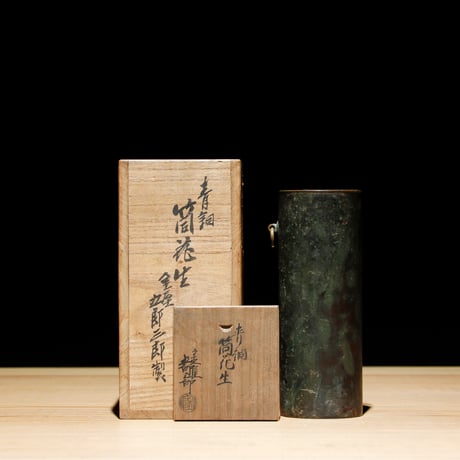 青銅
筒花生
金屋
五郎三郎製
青銅
筒花生